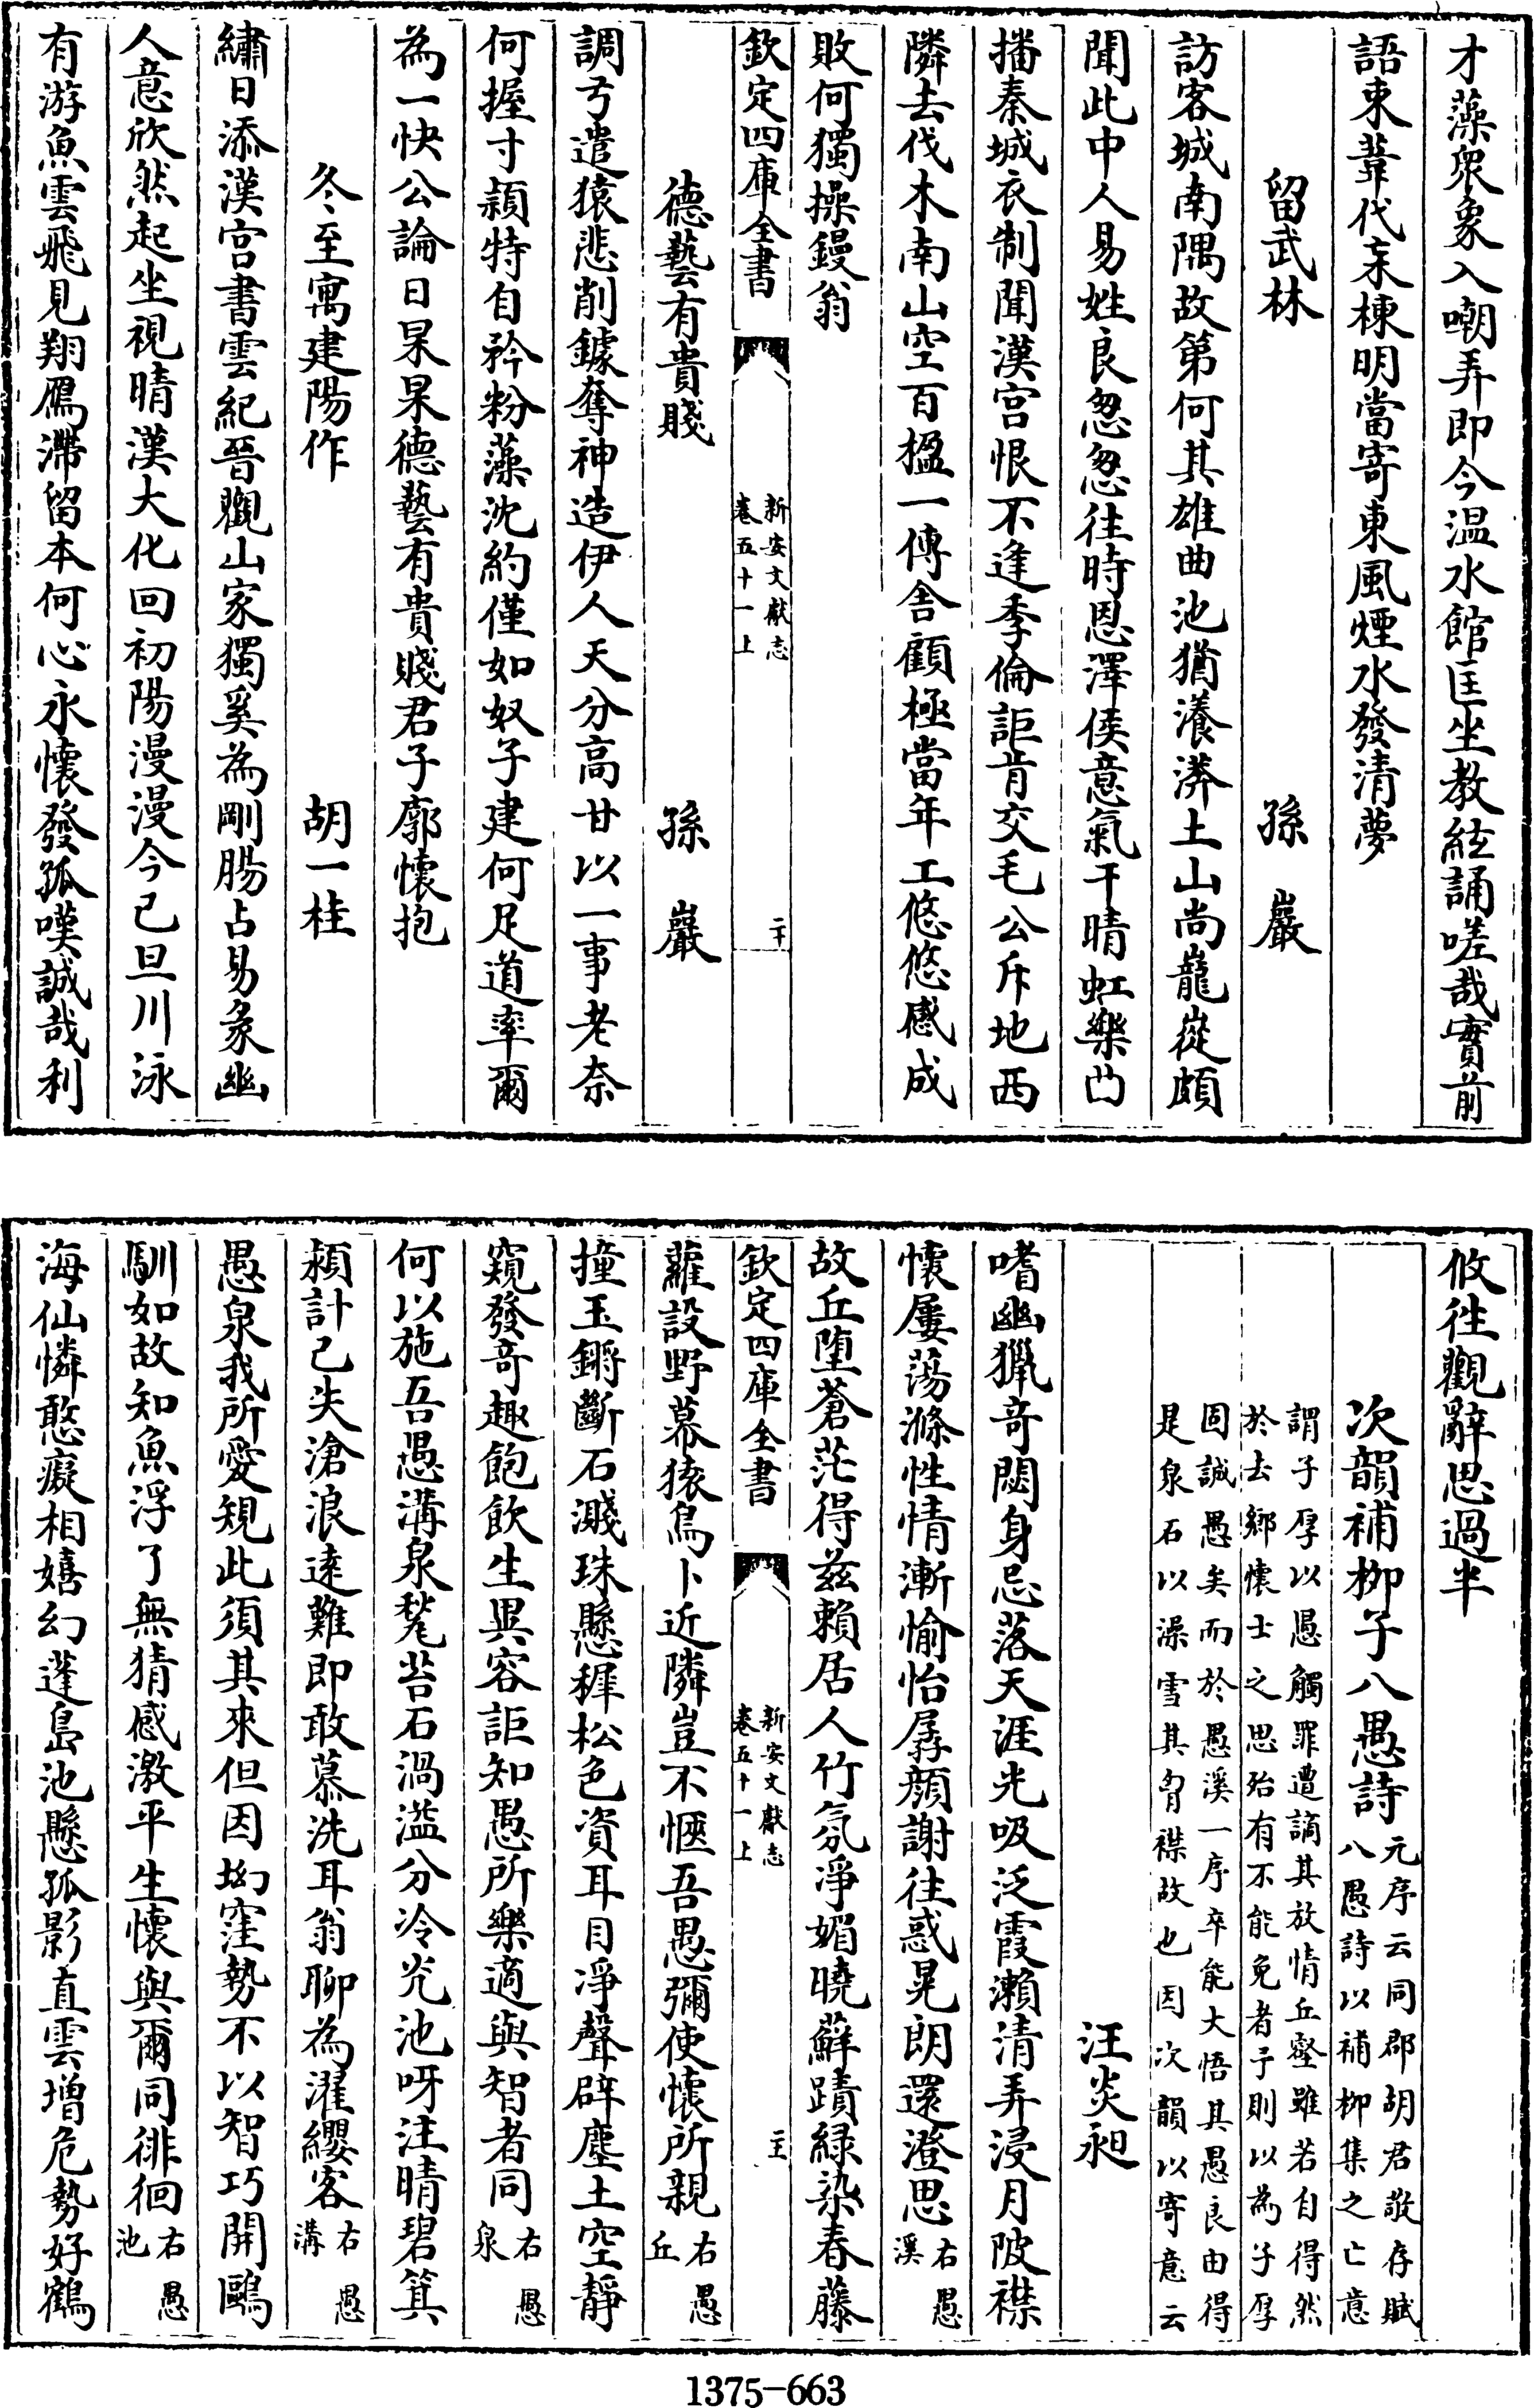 才藻衆象入嘲弄即今温水館匡坐教絃誦嗟哉實前
語束葦代杗棟明當寄東風煙水發清夢
留武林　孫巖
訪客城南隅故第何其雄曲池猶瀁漭土山尚巃嵸頗
聞此中人易姓良怱怱往時恩澤侯意氣干晴虹樂凸
播秦城衣制聞漢宫恨不逢季倫詎肯交毛公斥地西
隣去伐木南山空百楹一傳舎顧極當年工悠悠感成
敗何獨操鏝翁
欽定四庫全書
新安文獻志
卷五十一上
二十
德藝有貴賤　孫巖
調弓遣猿悲削鐻奪神造伊人天分高甘以一事老奈
何握寸穎特自矜粉藻沈約僅如奴子建何足道率爾
為一快公論日杲杲德藝有貴賤君子廓懷抱
冬至寓建陽作　胡一桂
繡日添漢宫書雲紀晉觀山家獨奚為剛腸占易彖幽
人意欣然起坐視晴漢大化回初陽漫漫今已旦川泳
有游魚雲飛見翔鴈滯留本何心永懷發孤嘆誠哉利
攸往觀辭思過半
次韻補柳子八愚詩
元序云同郡胡君敬存賦
八愚詩以補柳集之亡意
謂子厚以愚觸罪遭謫其放情丘壑雖若自得然
於去鄉懷士之思殆有不能免者予則以為子厚
固誠愚矣而於愚溪一序卒能大悟其愚良由得
是泉石以澡雪其胷襟故也因次韻以寄意云
汪炎昶
嗜幽獵奇閟身忌落天涯光吸泛霞瀬清弄浸月陂襟
懷屢蕩滌性情漸愉怡孱顔謝往惑晃朗還澄思右愚溪
故丘堕蒼茫得兹賴居人竹氛淨媚曉蘚蹟緑染春藤
欽定四庫全書
新安文獻志
卷五十一上
二十一
蘿設野幕猿鳥卜近隣豈不愜吾愚彌使懷所親右愚丘
撞玉鏘斷石濺珠懸穉松色資耳目凈聲辟塵土空靜
窺發奇趣飽飲生異容詎知愚所樂適與智者同右愚泉
何以施吾愚溝泉甃苔石渦溢分冷光池呀注晴碧箕
潁計已失滄浪逺難即敢慕洗耳翁聊為濯纓客右愚溝
愚泉我所愛規此須其來但因坳窪勢不以智巧開鷗
馴如故知魚浮了無猜感激平生懷與爾同徘徊右愚池
海仙憐憨癡相嬉幻蓬島池懸孤影直雲增危勢好鶴
1375-663